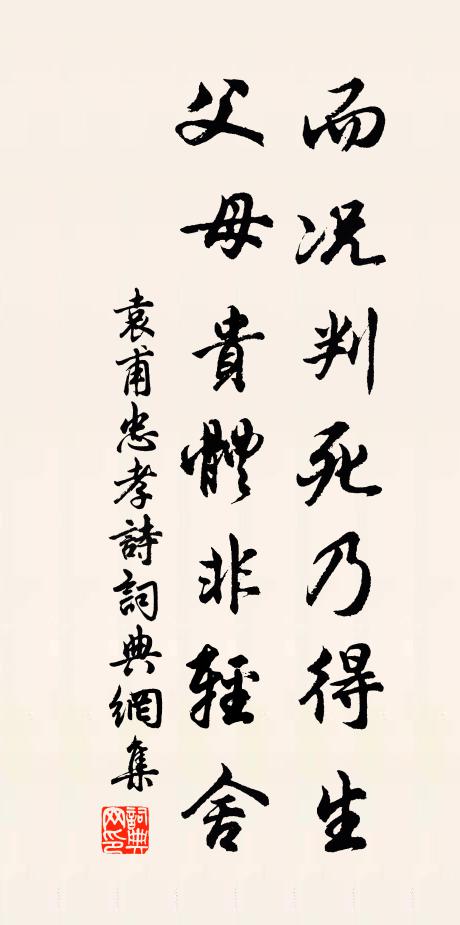 而况判死乃得生
父母貴體非輕舍
袁甫忠孝詩詞典網集
詞典網印